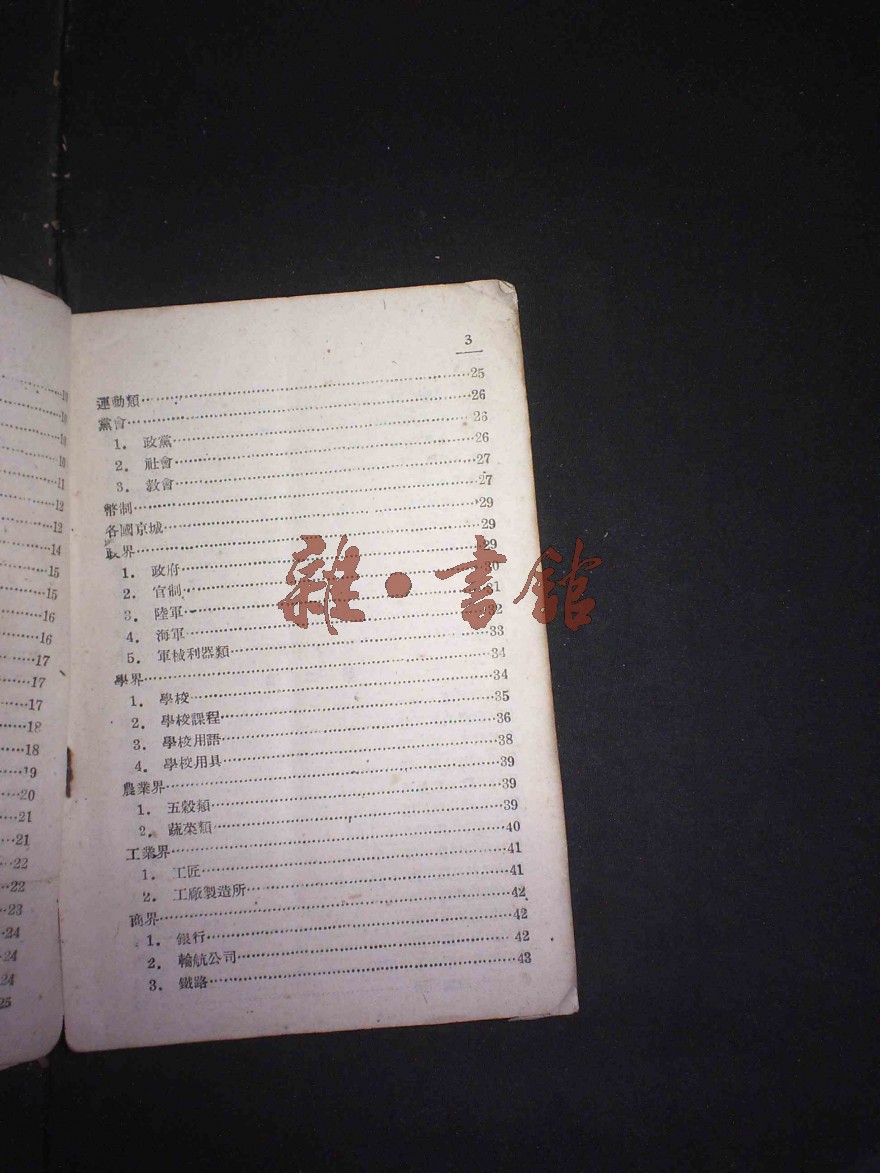 10
10
10
10
11
12
12
14
15
15
16
16
17
17
17
18
18
19
20
21
21
22
22
23
24
24
24
25
3
運動類……25
黨會……26
1. 政黨……26
2. 社會……26
3. 敎會……27
幣制……27
各國京城……29
政界……29
1. 政府……29
2. 官制……30
3. 陸軍……31
4. 海軍……32
5. 軍械利器類……33
學界……34
1. 學校……34
2. 學校課程……35
3. 學校用語……36
4. 學校用具……38
農業界……39
1. 五穀類……39
2. 蔬菜類……39
工業界……40
1. 工匠……41
2. 工廠製造所……41
商界……42
1. 銀行……42
2. 輪航公司……42
3. 鐵路……43
雜·書館